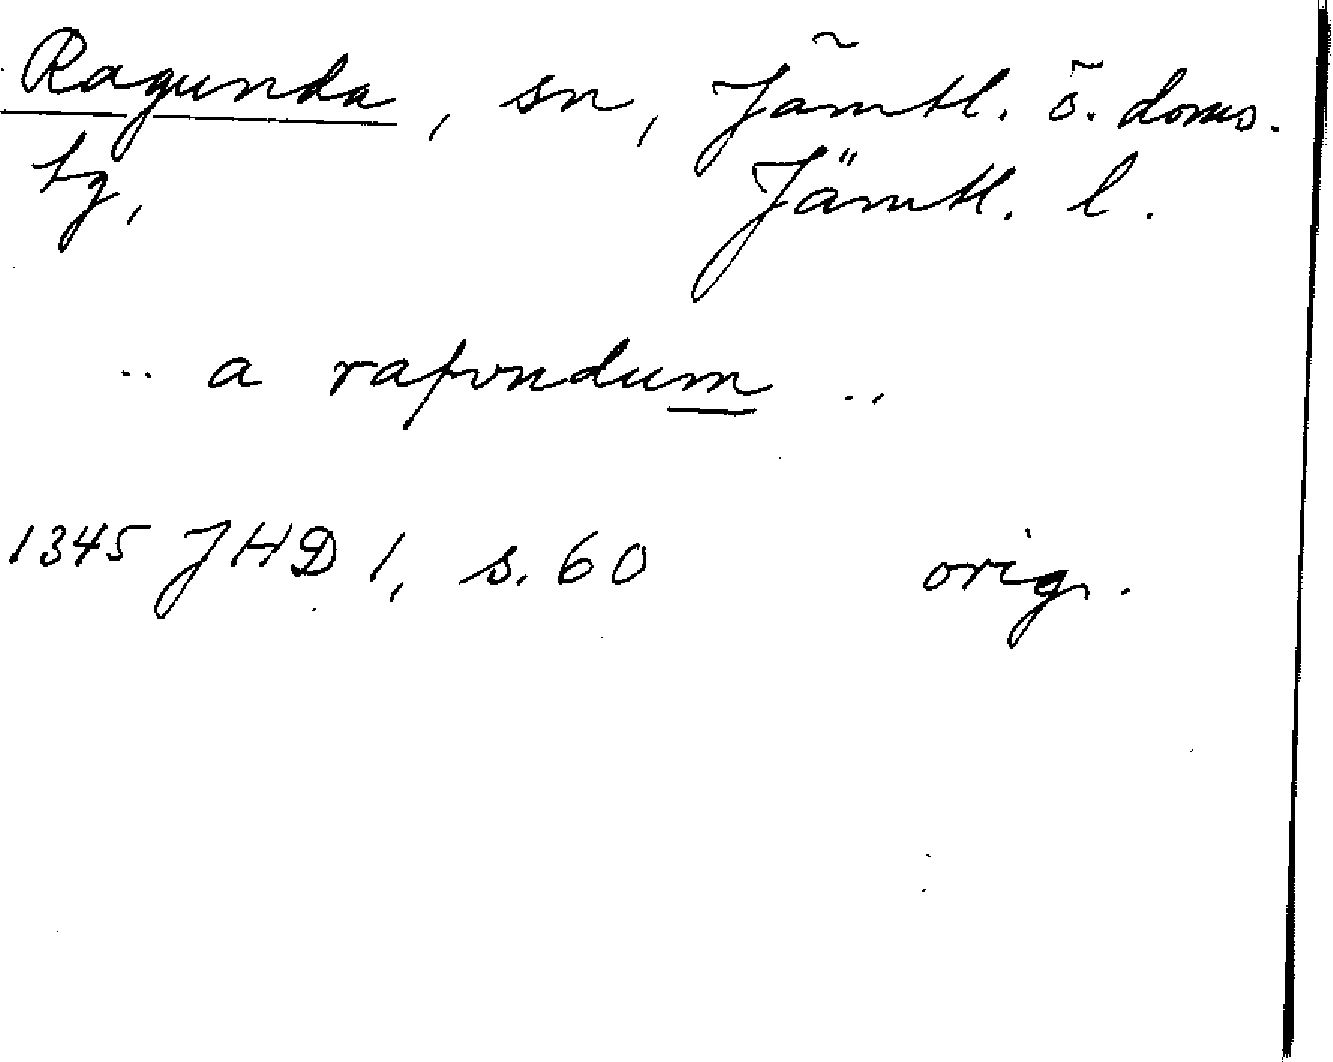 Ragunda, sn, Jämtl. ö. doms.
tg, Jämtl. l.
.. a rafvndum ..
1345 JHD 1, s. 60 orig.